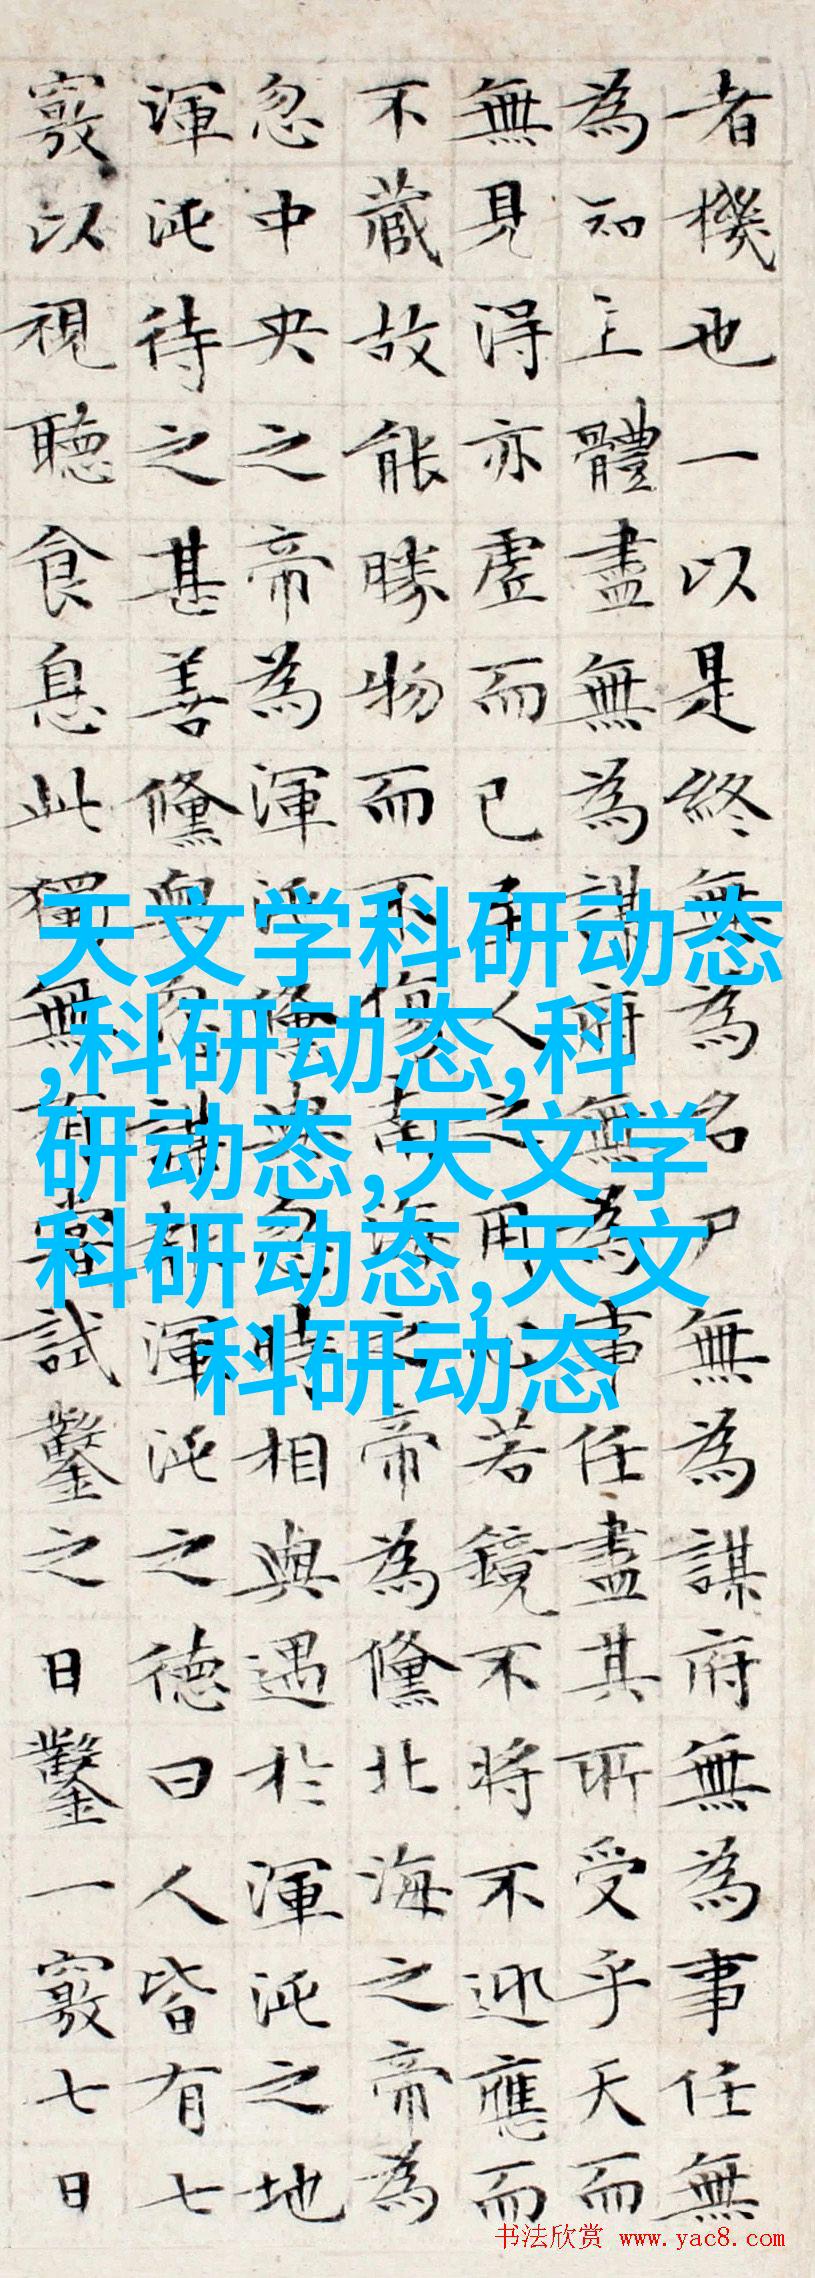 者機也一以是終無為名尸無為謀府無為事任無
為知主體盡無為謀府無為事任盡其所受乎天而
無見得亦虛而已至人之用心若鏡不將不迎應而
不藏故能勝物而不傷南海之帝為儵北海之帝為
忽中央之帝為渾沌儵與忽時相與遇於渾沌之地
渾沌待之甚善儵與忽謀報渾沌之德曰人皆有七
竅以視聽食息此獨無有嘗試鑿之日鑿一竅七日
天文学科研动态
,科研动态,科
研动态,天文学
科研动态,天文
科研动态
书法欣赏 www.yac8.com